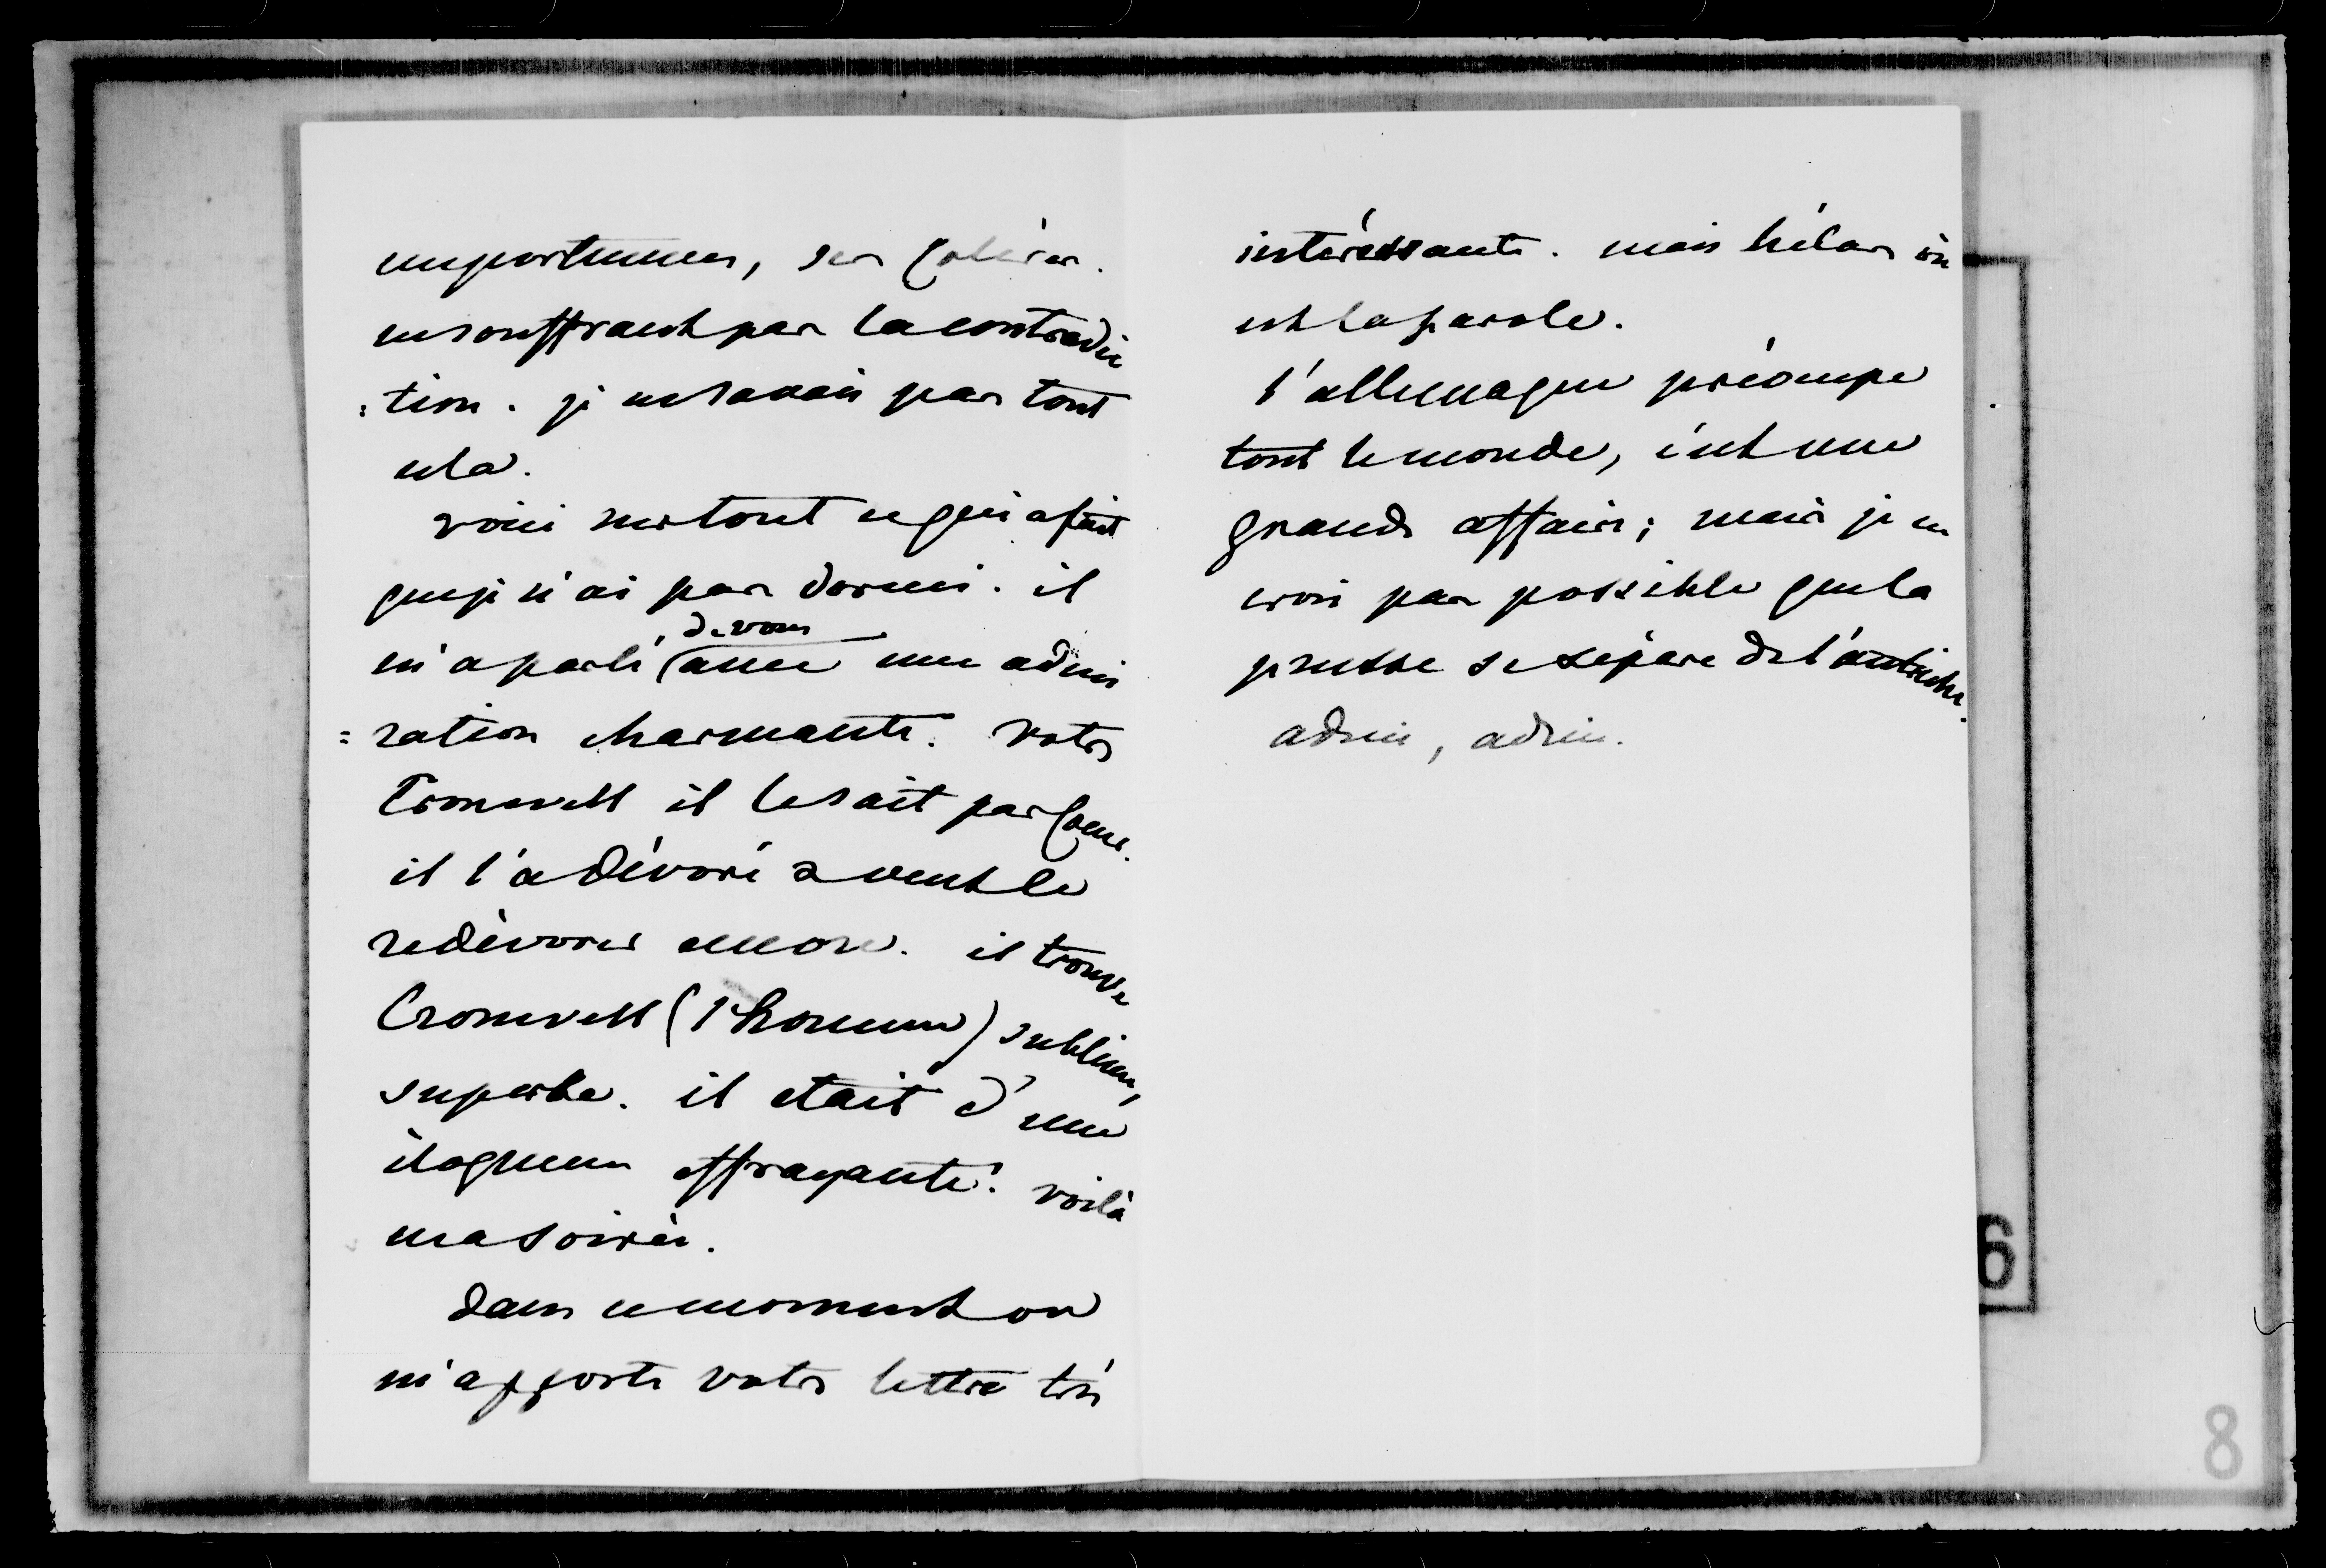 emportemens, ses colères.
ne souffrant pas la contradic
:tion. je ne savais pas tout
cela.
voici surtout ce qui a fait
que je n'ai pas dormi. il
m'a parlé de vous avec une admi
=ration charmante. votre
Cromwell il le sait par coeur.
il l'a dévoré & veut le
redévorer encore. il trouve
Cromwell (l'homme) sublime,
superbe. il etait d'une
éloquence effrayante. voilà
ma soirée.
dans ce moment on
m'apporte votre lettre très
intéressante. mais hélas où
est la parole.
l'allemagne préoccupe
tout le monde, c'est une
grande affaire; mais je ne
crois pas possible que la
prusse se sépare de l'autriche.
adieu, adieu.
6
8